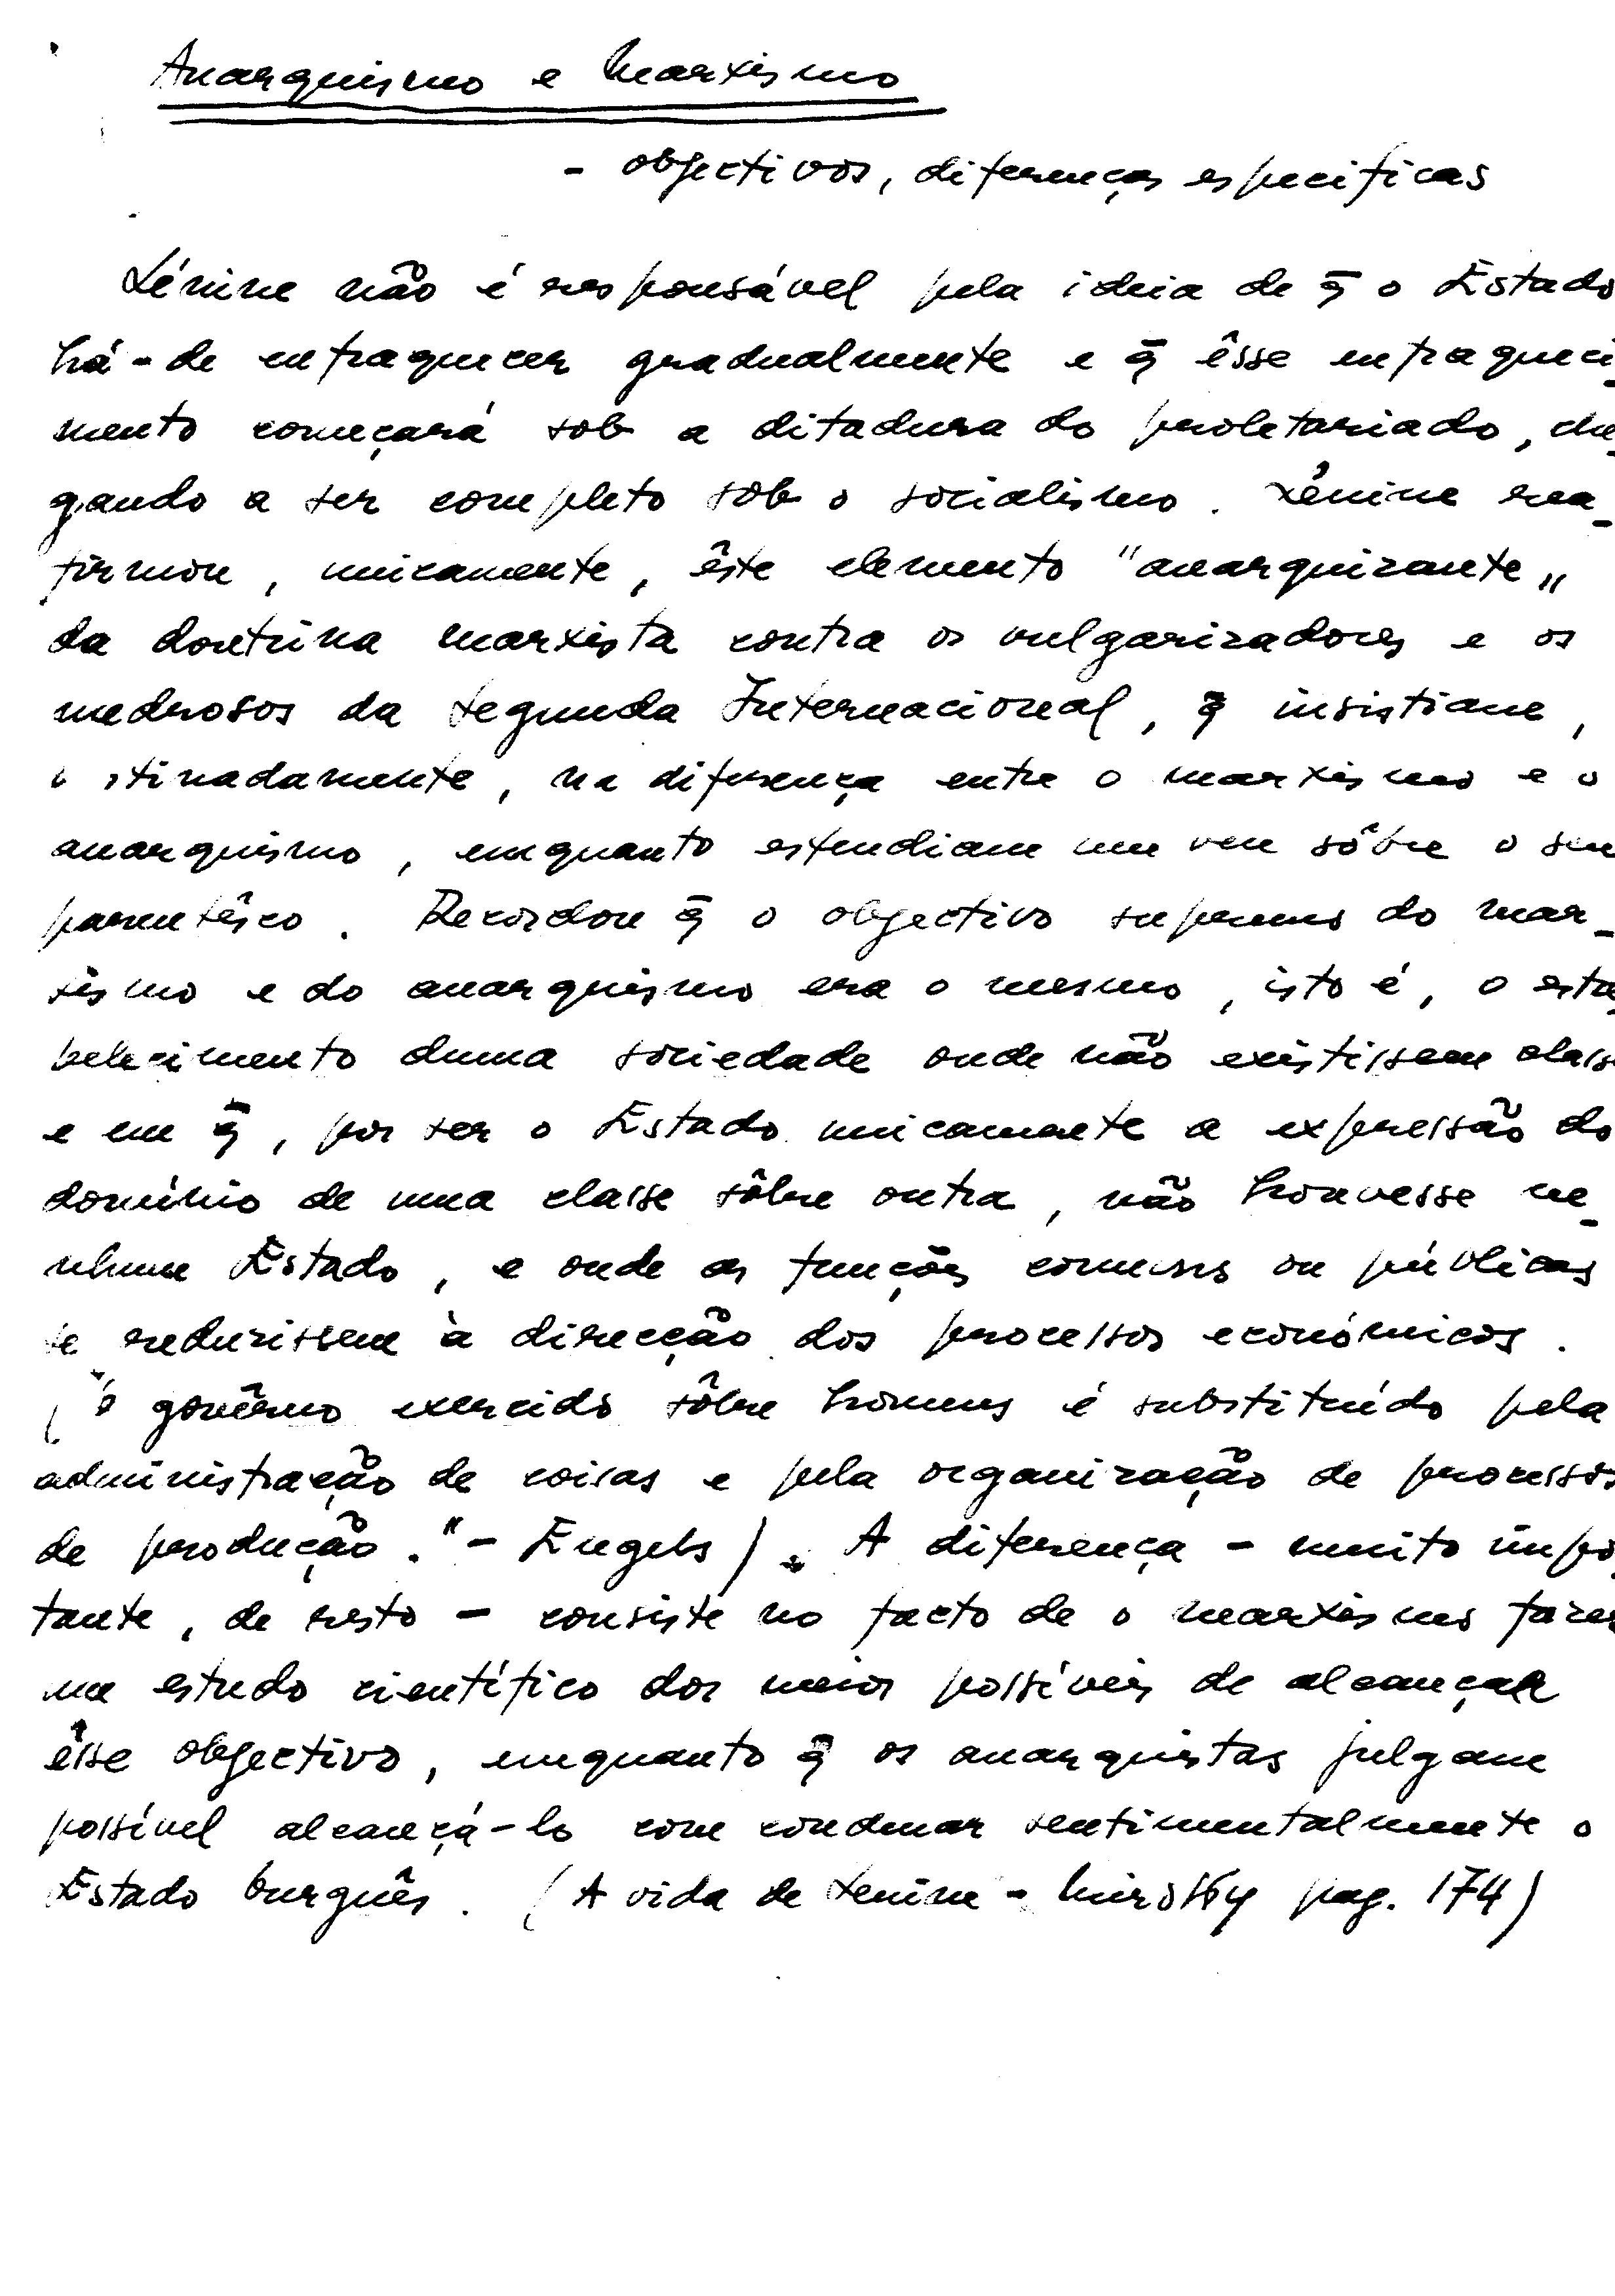 Anarquismo e Marxismo
- objectivos, diferenças especificas
Lénine não é responsável pela ideia de q̄ o Estado
há-de enfraquecer gradualmente e q̄ êsse enfraqueci-
mento começará sob a ditadura do proletariado, che-
gando a ser completo sob o socialismo. Lénine rea-
firmou, unicamente, êste elemento "anarquizante"
da doutrina marxista contra os vulgarizadores e os
medrosos da segunda Internacional, q̄ insistiam,
obstinadamente, na diferença entre o marxismo e o
anarquismo, emquanto estendiam um veu sôbre o seu
parentêsco. Recordou q̄ o objectivo supremo do mar-
xismo e do anarquismo era o mesmo, isto é, o esta-
belecimento duma sociedade onde não existissem class
e em q̄, por ser o Estado unicamente a expressão do
domínio de uma classe sôbre outra, não houvesse ne-
nhum Estado, e onde as funções comuns ou públicas
se reduzissem à direcção dos processos económicos.
("o govêrno exercido sôbre homens é substituído pela
administração de coisas e pela organização de processos
de produção." - Engels). A diferença - muito impo
tante, de resto - consiste no facto de o marxismo fazer
um estudo científico dos meios possíveis de alcançar
êsse objectivo, emquanto q̄ os anarquistas julgam
possível alcançá-lo com condenar sentimentalmente o
Estado burguês. (A vida de Lenine - Mirsky pag. 174)